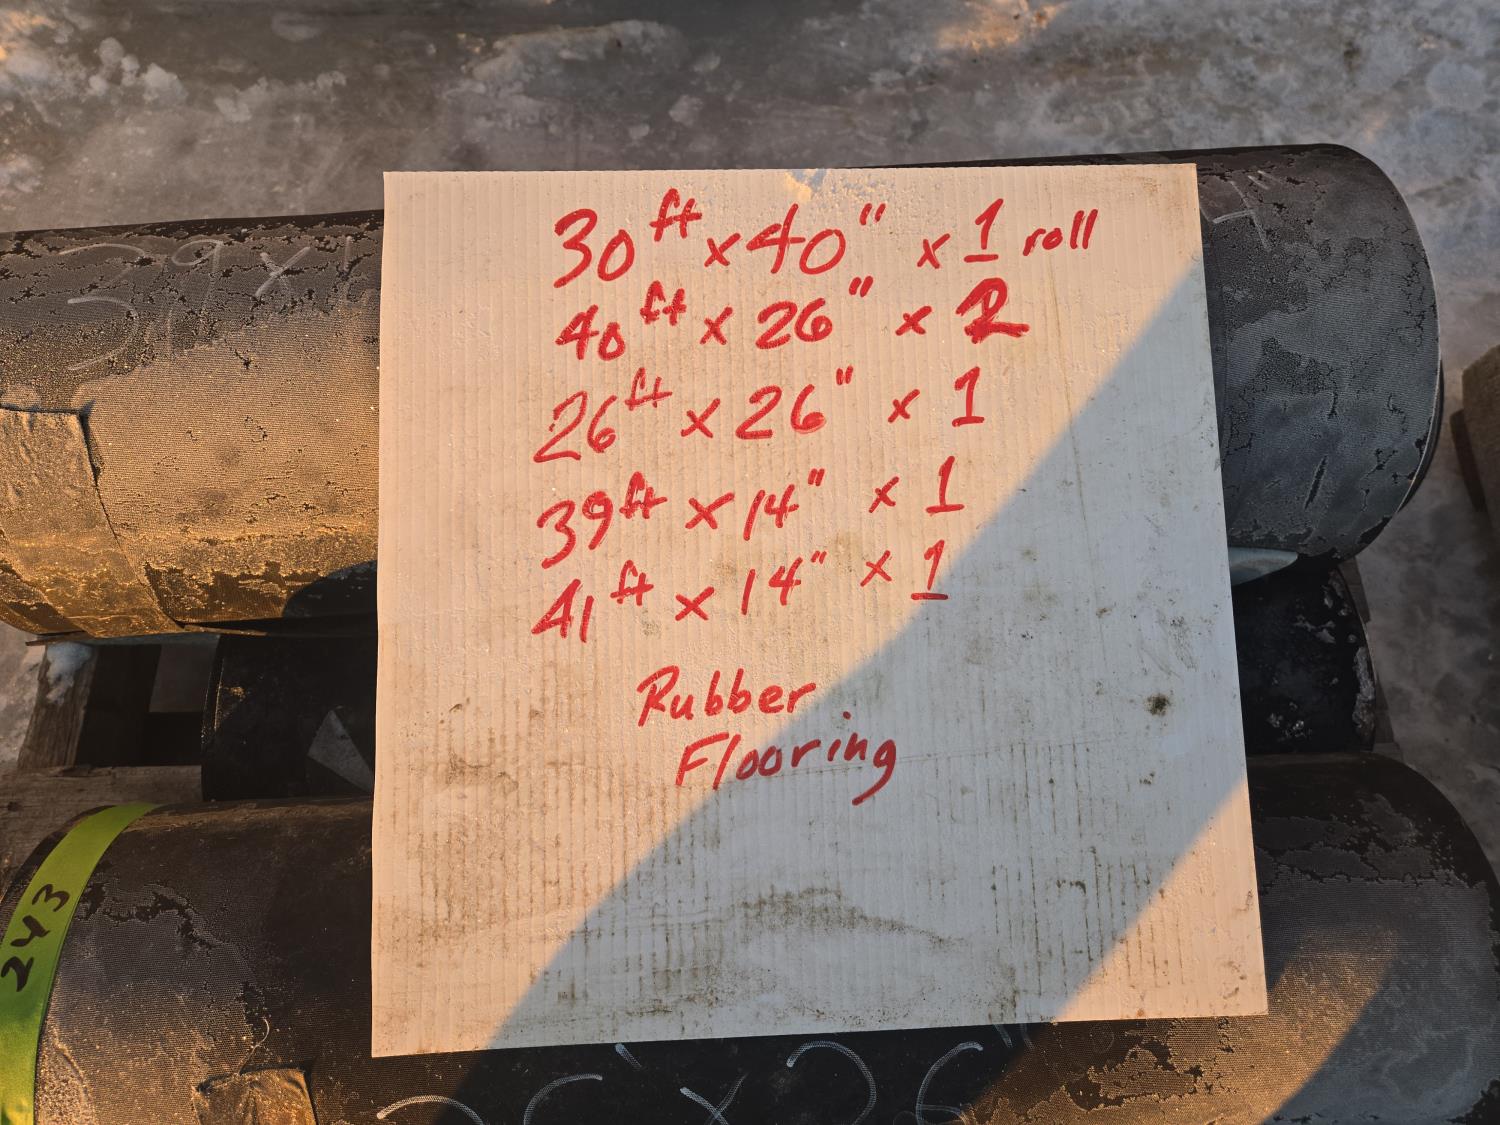 30 ft x 40" x 1 roll
40 ft x 26" x 2
26 ft x 26" x 1
39 ft x 14" x 1
41 ft x 14" x 1
Rubber
Flooring
39 x
243
x 26"